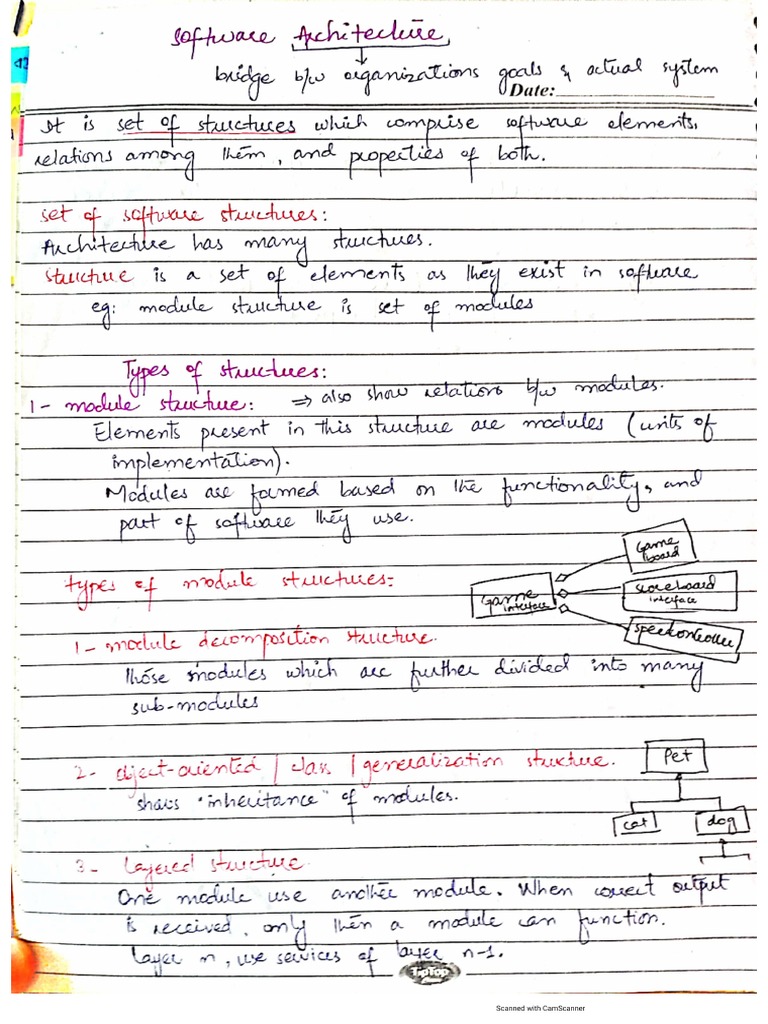 Software Architecture
bridge b/w organizations goals & actual system
Date:
It is set of structures which comprise software elements,
relations among them, and properties of both.
set of software structures:
Architecture has many structures.
structure is a set of elements as they exist in software
eg: module structure is set of modules
Types of structures:
1- module structure: ⇒ also show relations b/w modules.
Elements present in this structure are modules (units of
implementation).
Modules are formed based on the functionality, and
part of software they use.
Game
board
types of module structures:-
Game
interface
scoreboard
interface
speedcontroller
1- module decomposition structure.
those modules which are further divided into many
sub-modules
2- oject-oriented | class | generalization structure.
Pet
shows "inheritance" of modules.
cat dog
3- Layered structure
One module use another module. When correct output
is received, only then a module can function.
Layer n, use services of layer n-1.
TipTop
Scanned with CamScanner